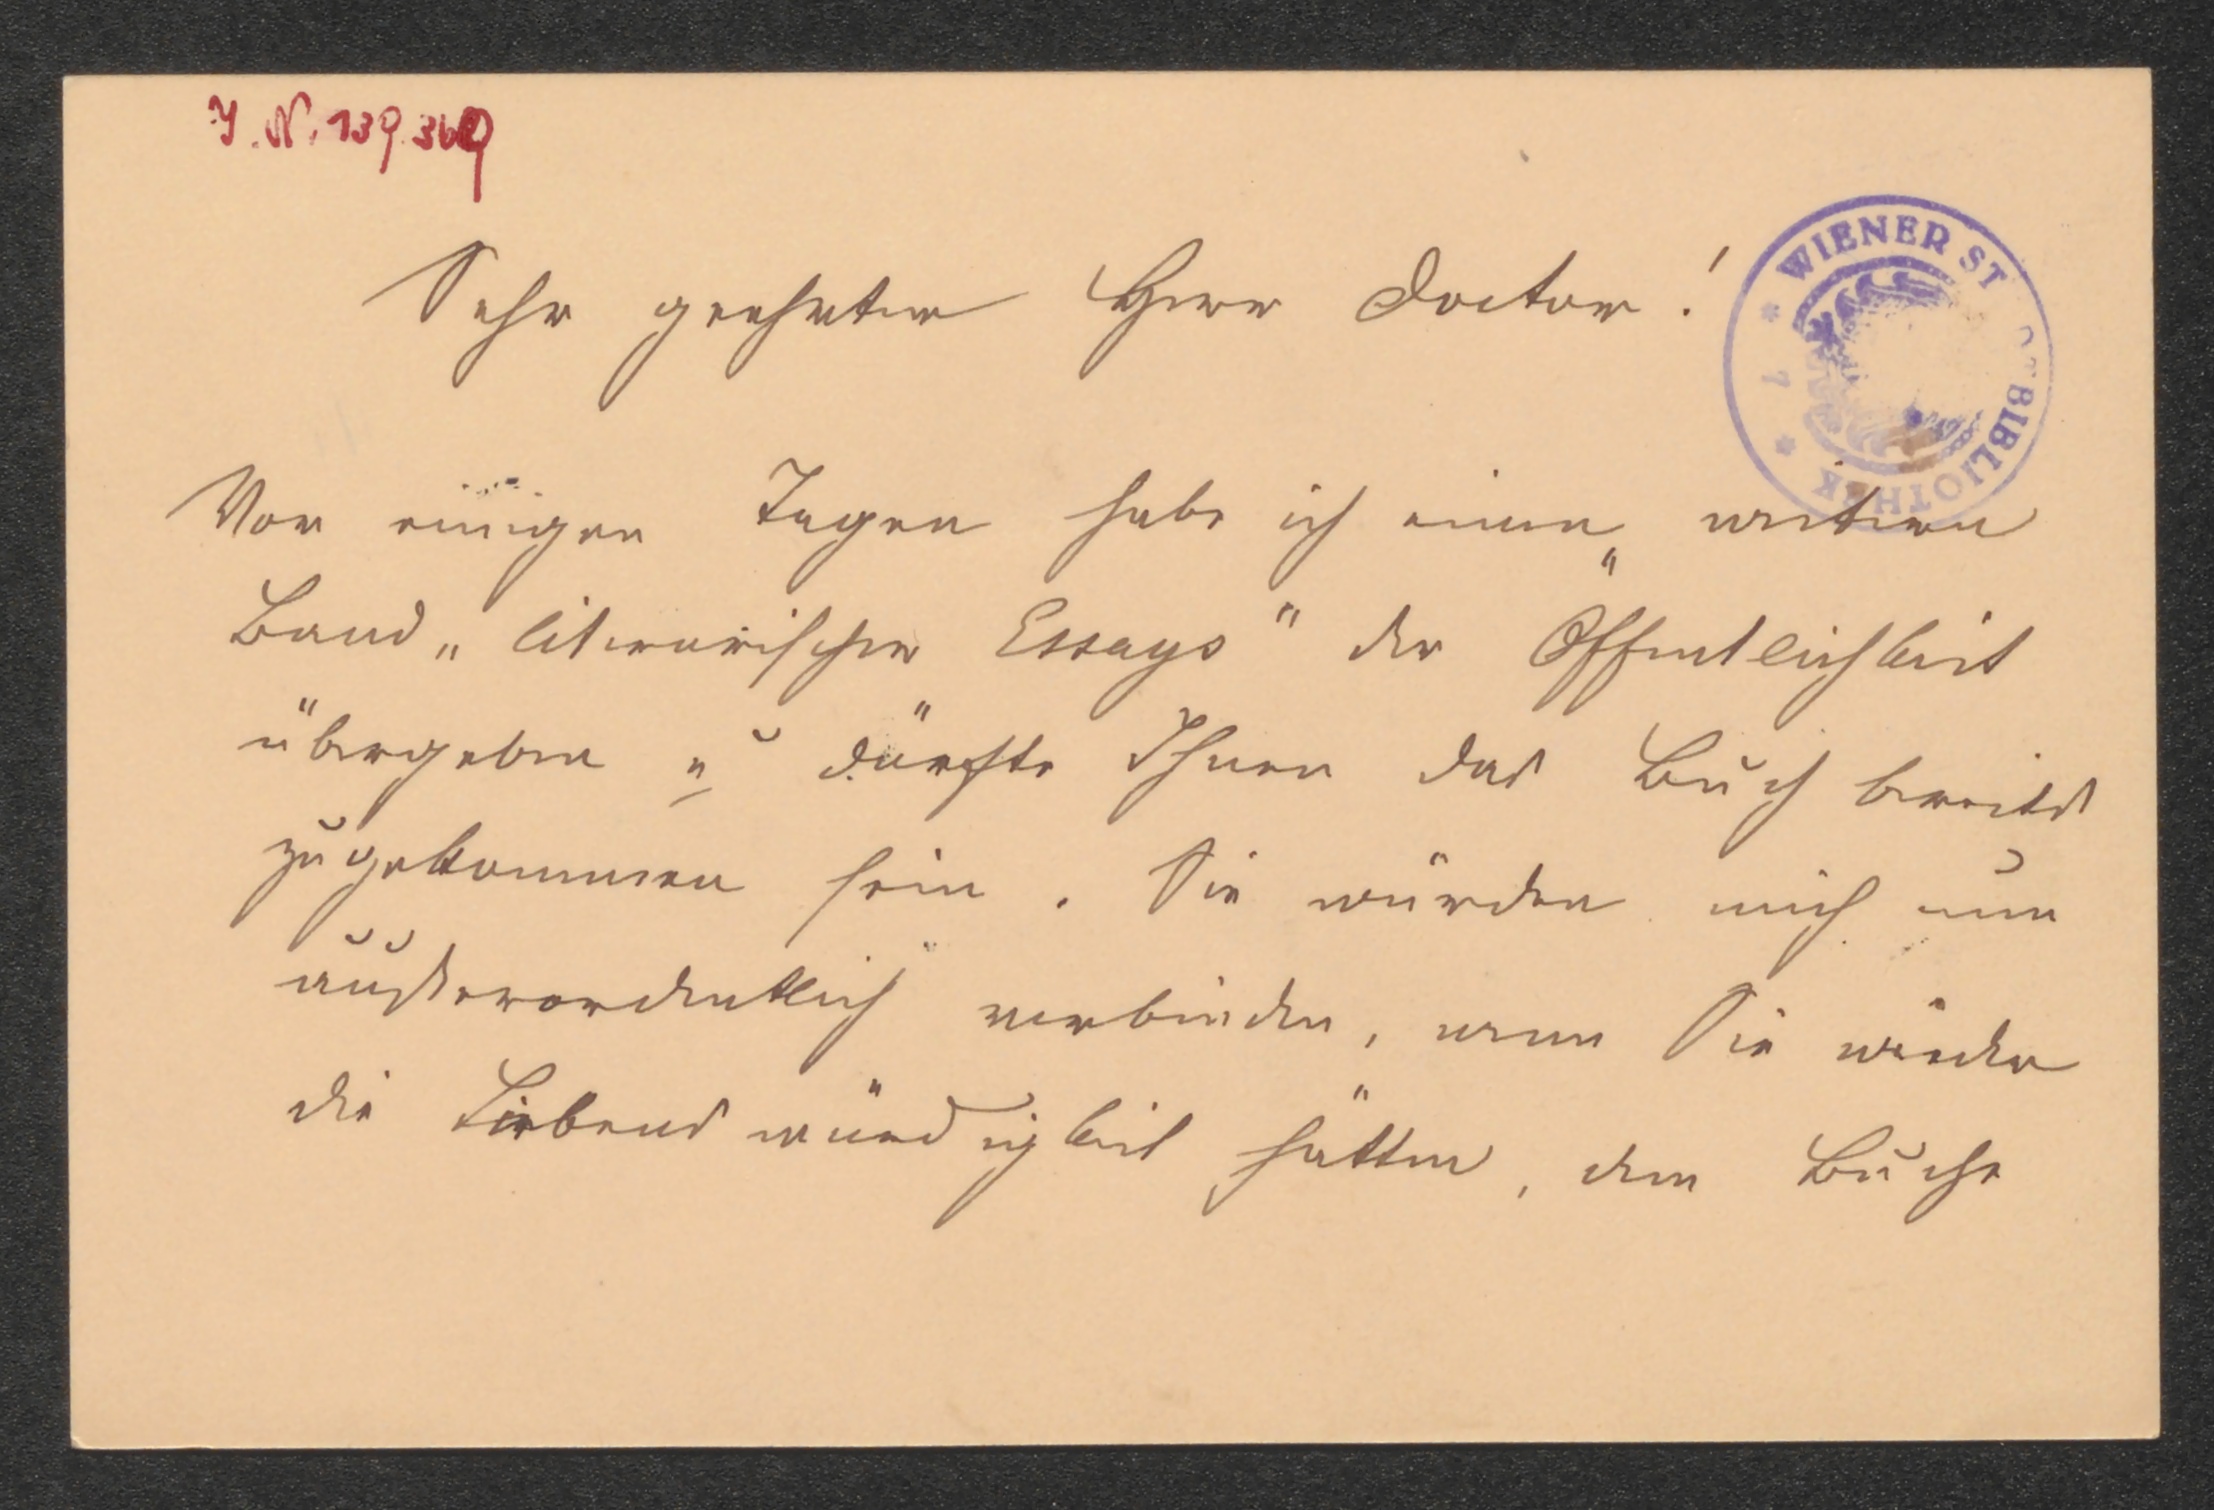 J. N. 139.369
WIENER ST
BIBLIOTHEK
* 7 *
Sehr geehrter Herr Doctor!
Vor einigen Tagen habe ich einen weitern
Band „literarischer Essays" der Öffentlichkeit
übergeben u dürfte Ihnen das Buch bereits
zugekommen sein. Sie würden mich nun
außerordentlich verbinden, wenn Sie wieder
die Liebenswürdigkeit hätten, dem Buche